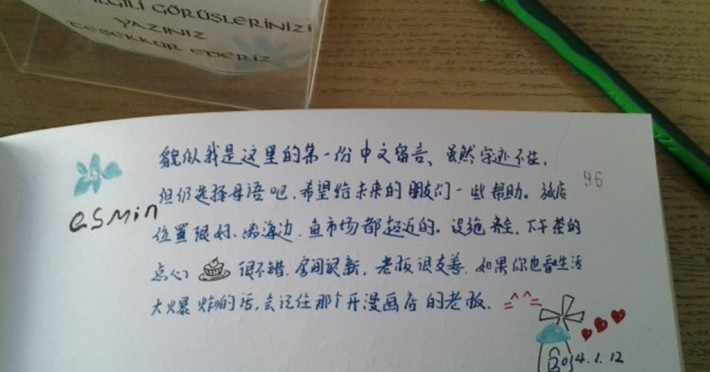 İLGİLİ GÖRÜŞLERİNİZİ
YAZINIZ
TEŞEKKÜR EDERİZ
貌似我是这里的第一份中文留言、虽然字迹不佳,
但仍选择母语吧,希望给未来的朋友们一些帮助。旅店
96
esmin
位置很好,离海边、鱼市场都超近的。设施齐全,下午茶的
点心 很不错,房间很新,老板很友善,如果你也看生活
大爆炸的话,会记住那个开漫画店的老板. =^^=
2014.1.12